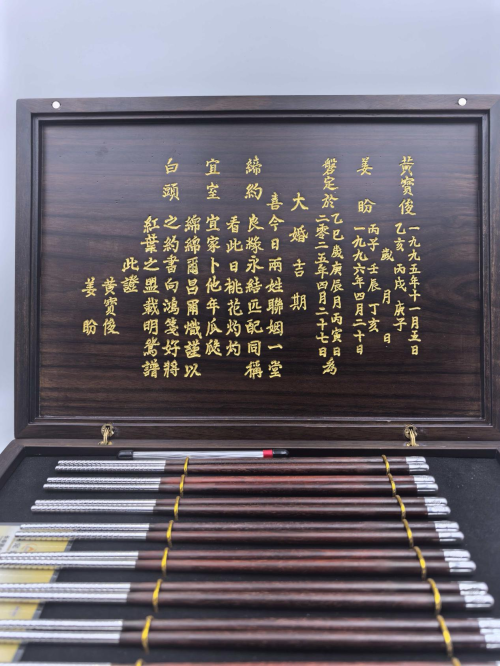 黃寶俊
一九九五年十一月五日
乙亥 丙戌 庚子
歲 月 日
姜 盼
丙子 壬辰 丁亥
一九九六年四月二十日
磐定於
乙巳歲庚辰月丙寅日為
二零二五年四月二十七日
大婚吉期
喜今日兩姓聯姻一堂
締約良緣永結匹配同稱
看此日桃花灼灼
宜室宜家卜他年瓜瓞
綿綿爾昌爾熾謹以
白頭之約書向鴻箋好將
紅葉之盟載明鴛譜
此證
黃寶俊
姜 盼